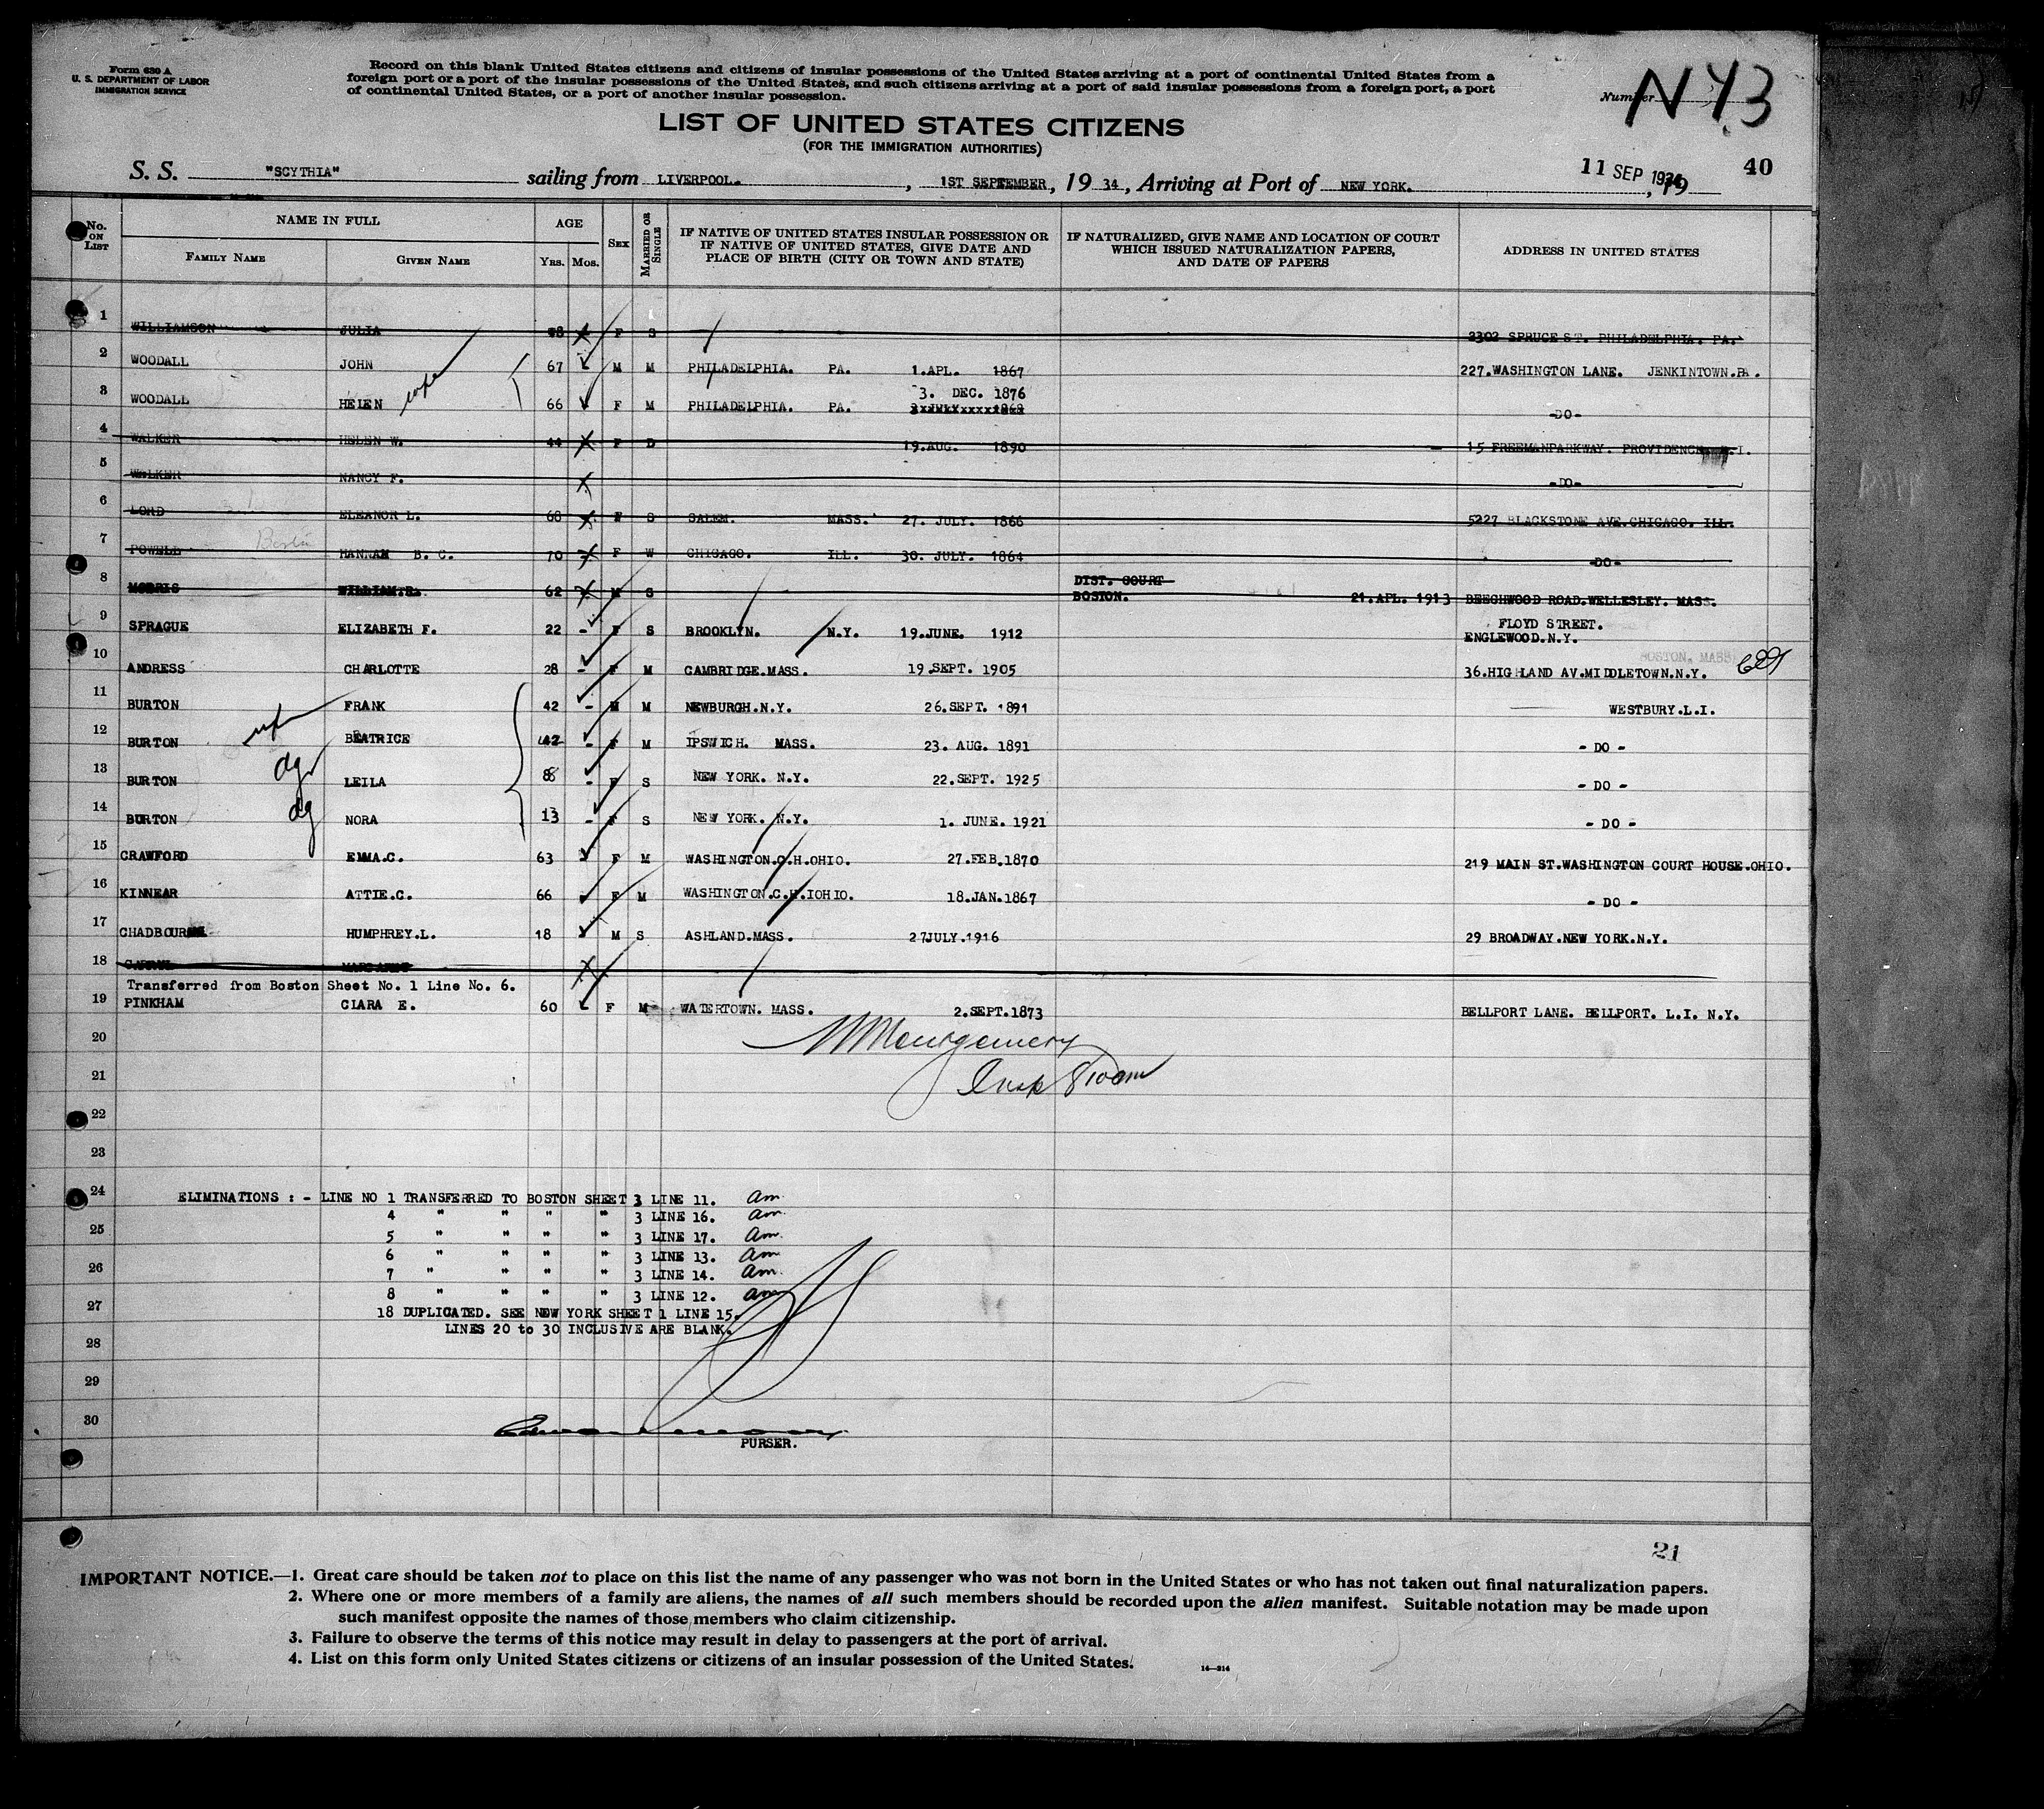 Form 630 A
U. S. DEPARTMENT OF LABOR
IMMIGRATION SERVICE
Record on this blank United States citizens and citizens of insular possessions of the United States arriving at a port of continental United States from a
foreign port or a port of the insular possessions of the United States, and such citizens arriving at a port of said insular possessions from a foreign port, a port
of continental United States, or a port of another insular possession.
Number N Y 3
LIST OF UNITED STATES CITIZENS
(FOR THE IMMIGRATION AUTHORITIES)
40
S. S. "SCYTHIA" sailing from LIVERPOOL. , 1ST SEPTEMBER, 19 34, Arriving at Port of NEW YORK. 11 SEP 1934, 19
No. ON LIST
NAME IN FULL
FAMILY NAME
GIVEN NAME
AGE
YRS. MOS.
SEX
MARRIED OR SINGLE
IF NATIVE OF UNITED STATES INSULAR POSSESSION OR
IF NATIVE OF UNITED STATES, GIVE DATE AND
PLACE OF BIRTH (CITY OR TOWN AND STATE)
IF NATURALIZED, GIVE NAME AND LOCATION OF COURT
WHICH ISSUED NATURALIZATION PAPERS,
AND DATE OF PAPERS
ADDRESS IN UNITED STATES
1 WILLIAMSON JULIA F S 2302 SPRUCE ST. PHILADELPHIA. PA.
2 WOODALL JOHN 67 M M PHILADELPHIA. PA. 1.APL. 1867 227.WASHINGTON LANE. JENKINTOWN.PA.
3. DEC. 1876
3 WOODALL HELEN wife 66 F M PHILADELPHIA. PA. -DO-
4 WALKER HELEN W. 44 F D 19.AUG. 1890 15 FREEMANPARKWAY. PROVIDENCE. R.I.
5 WALKER NANCY F. -DO-
6 LORD ELEANOR L. 68 F S SALEM. MASS. 27. JULY. 1866 5227 BLACKSTONE AVE.CHICAGO. ILL.
7 POWELL Boston HANNAH B. C. 70 F W CHICAGO. ILL. 30. JULY. 1864 -DO-
8 MORRIS WILLIAM 62 M S DIST. COURT
BOSTON. 21.APL. 1913 BEECHWOOD ROAD.WELLESLEY. MASS.
9 SPRAGUE ELIZABETH F. 22 - F S BROOKLYN. N.Y. 19.JUNE. 1912 FLOYD STREET.
ENGLEWOOD.N.Y.
BOSTON, MASS
10 ANDRESS CHARLOTTE 28 - F M CAMBRIDGE.MASS. 19.SEPT. 1905 36.HIGHLAND AV.MIDDLETOWN.N.Y.
11 BURTON FRANK 42 - M M NEWBURGH.N.Y. 26.SEPT. 1891 WESTBURY.L.I.
12 BURTON wife BEATRICE 42 - F M IPSWICH. MASS. 23. AUG. 1891 - DO -
13 BURTON dg LEILA 8 - F S NEW YORK. N.Y. 22.SEPT. 1925 - DO -
14 BURTON dg NORA 13 - F S NEW YORK. N.Y. 1. JUNE. 1921 - DO -
15 CRAWFORD EMMA.C. 63 F M WASHINGTON.C.H.OHIO. 27.FEB.1870 219 MAIN ST.WASHINGTON COURT HOUSE.OHIO.
16 KINNEAR ATTIE.C. 66 F M WASHINGTON.C.H.IOHIO. 18.JAN.1867 - DO -
17 CHADBOUR HUMPHREY.L. 18 M S ASHLAND.MASS. 27JULY.1916 29 BROADWAY.NEW YORK.N.Y.
18 MARGARET
Transferred from Boston Sheet No. 1 Line No. 6.
19 PINKHAM CLARA E. 60 F M WATERTOWN. MASS. 2.SEPT.1873 BELLPORT LANE. BELLPORT. L.I. N.Y.
20 Montgomery
21 Insp
22
23
24 ELIMINATIONS : - LINE NO 1 TRANSFERRED TO BOSTON SHEET 3 LINE 11. am
4 " " " " 3 LINE 16. am.
25 5 " " " " 3 LINE 17. am.
6 " " " " 3 LINE 13. am
26 7 " " " " 3 LINE 14. am.
8 " " " " 3 LINE 12. am
27 18 DUPLICATED. SEE NEW YORK SHEET 1 LINE 15.
LINES 20 to 30 INCLUSIVE ARE BLANK.
28
29
30
PURSER.
21
IMPORTANT NOTICE.—1. Great care should be taken not to place on this list the name of any passenger who was not born in the United States or who has not taken out final naturalization papers.
2. Where one or more members of a family are aliens, the names of all such members should be recorded upon the alien manifest. Suitable notation may be made upon
such manifest opposite the names of those members who claim citizenship.
3. Failure to observe the terms of this notice may result in delay to passengers at the port of arrival.
4. List on this form only United States citizens or citizens of an insular possession of the United States.
14—214